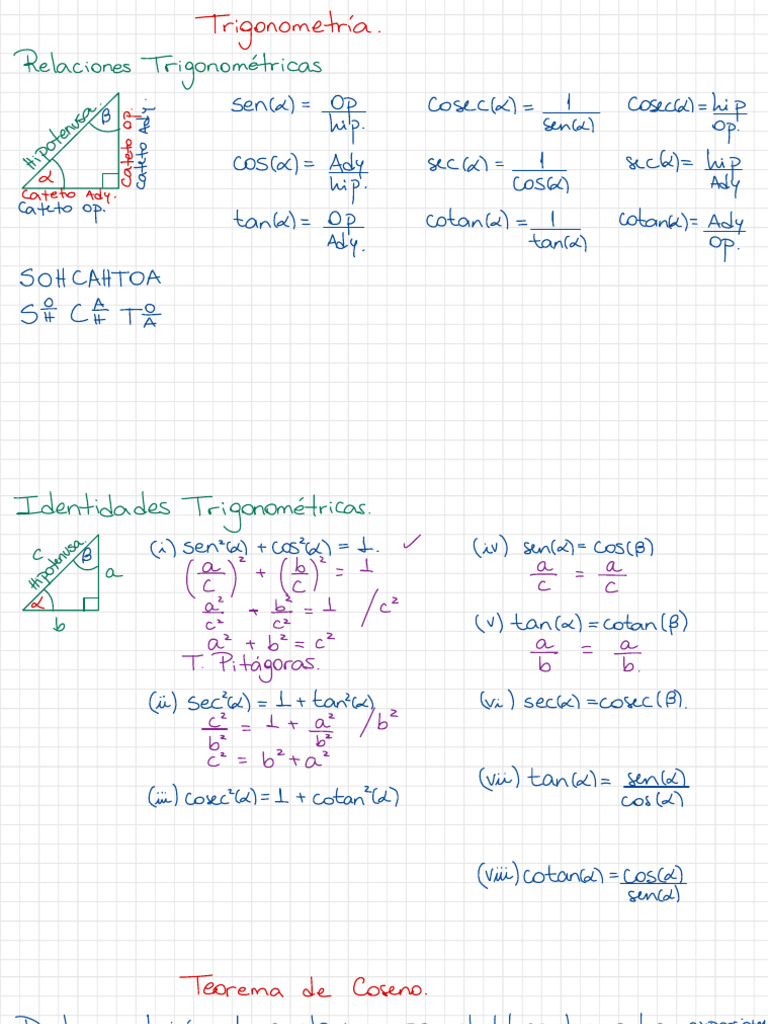 Trigonometría.
Relaciones Trigonométricas
Hipotenusa.
β
α
Cateto Op.
Cateto Ady.
Cateto Ady.
Cateto Op.
sen(α) = Op/hip.
cosec(α) = 1/sen(α)
cosec(α) = hip/Op.
cos(α) = Ady/hip.
sec(α) = 1/cos(α)
sec(α) = hip/Ady
tan(α) = Op/Ady.
cotan(α) = 1/tan(α)
cotan(α) = Ady/Op.
SOHCAHTOA
S O/H C A/H T O/A
Identidades Trigonométricas.
c
Hipotenusa.
β
a
α
b
(i) sen²(α) + cos²(α) = 1. ✓
(a/c)² + (b/c)² = 1
a²/c² + b²/c² = 1 /c²
a² + b² = c²
T. Pitágoras.
(ii) sec²(α) = 1 + tan²(α)
c²/b² = 1 + a²/b² /b²
c² = b² + a²
(iii) cosec²(α) = 1 + cotan²(α)
(iv) sen(α) = cos(β)
a/c = a/c
(v) tan(α) = cotan(β)
a/b = a/b.
(vi) sec(α) = cosec(β).
(vii) tan(α) = sen(α)/cos(α)
(viii) cotan(α) = cos(α)/sen(α)
Teorema de Coseno.